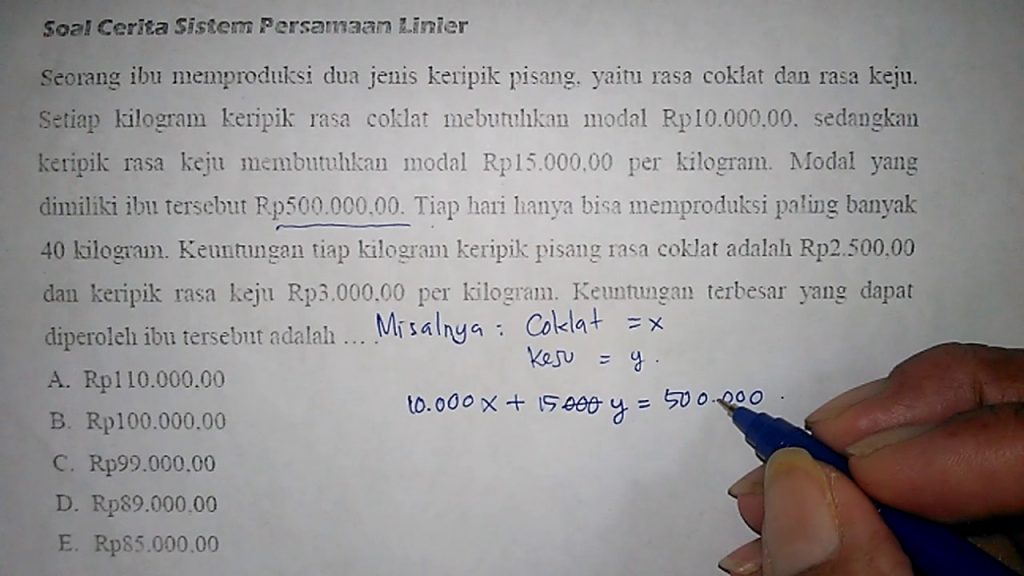 Soal Cerita Sistem Persamaan Linier
Seorang ibu memproduksi dua jenis keripik pisang, yaitu rasa coklat dan rasa keju.
Setiap kilogram keripik rasa coklat mebutuhkan modal Rp10.000,00, sedangkan
keripik rasa keju membutuhkan modal Rp15.000,00 per kilogram. Modal yang
dimiliki ibu tersebut Rp500.000,00. Tiap hari hanya bisa memproduksi paling banyak
40 kilogram. Keuntungan tiap kilogram keripik pisang rasa coklat adalah Rp2.500,00
dan keripik rasa keju Rp3.000,00 per kilogram. Keuntungan terbesar yang dapat
diperoleh ibu tersebut adalah ... .
Misalnya : Coklat = x
Keju = y .
10.000 x + 15.000 y = 500.000
A. Rp110.000,00
B. Rp100.000,00
C. Rp99.000,00
D. Rp89.000,00
E. Rp85.000,00